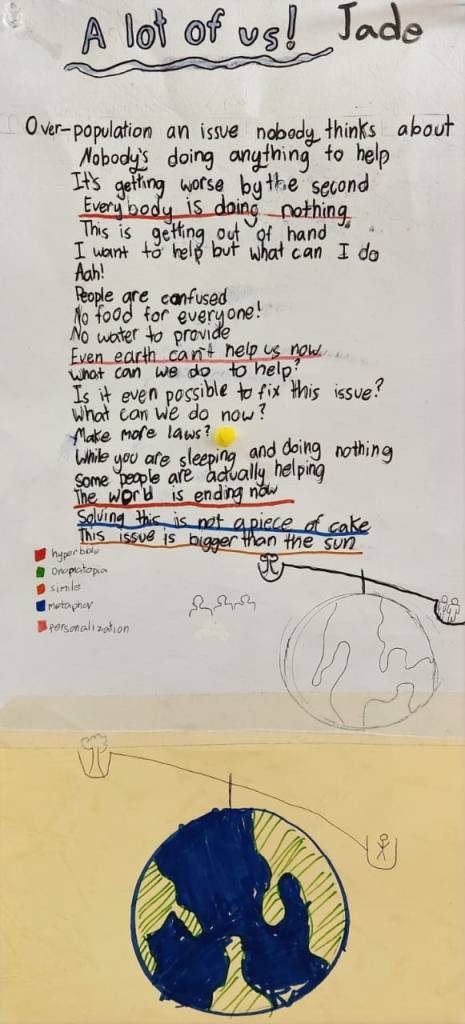 A lot of us! Jade
Over-population an issue nobody thinks about
Nobody's doing anything to help
It's getting worse by the second
Everybody is doing nothing
This is getting out of hand
I want to help but what can I do
Aah!
People are confused
No food for everyone!
No water to provide
Even earth can't help us now
What can we do to help?
Is it even possible to fix this issue?
What can we do now?
Make more laws?
While you are sleeping and doing nothing
some people are actually helping
The world is ending now
Solving this is not a piece of cake
This issue is bigger than the sun
hyperbole
Onomatopia
simile
metaphor
personalization